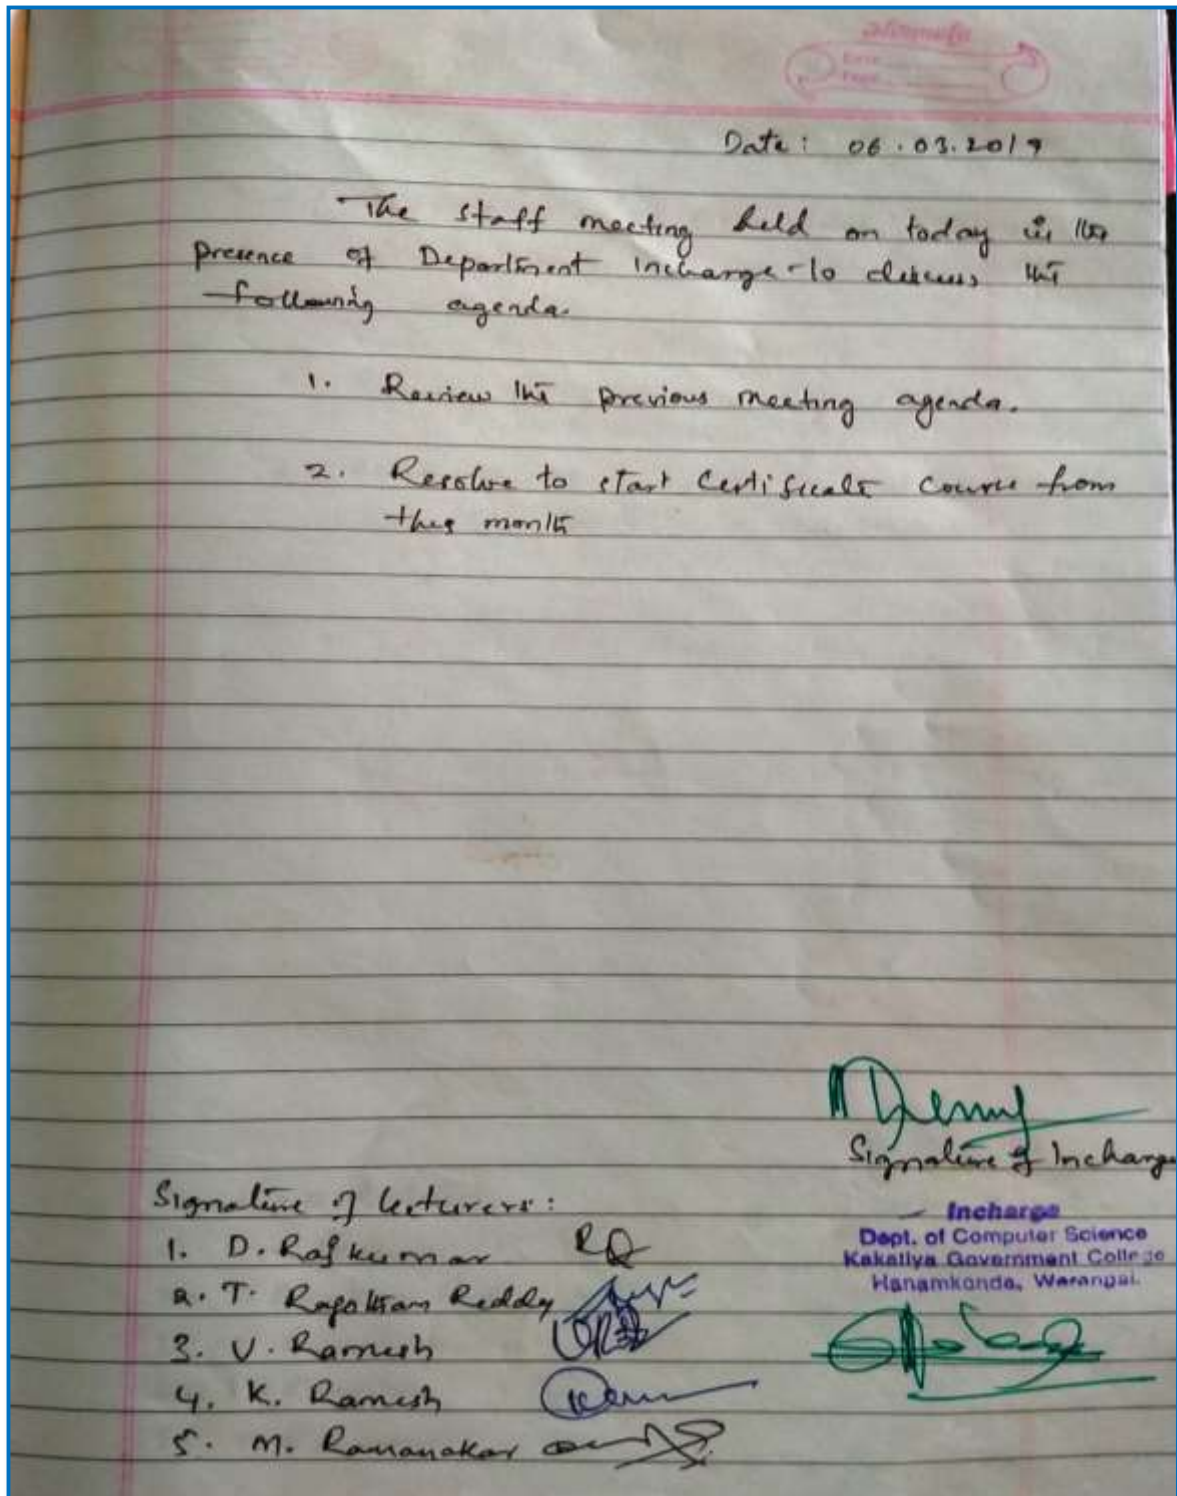 Date: 06.03.2019
The staff meeting held on today in the
presence of Department Incharge to discuss the
following agenda.
1. Review the previous meeting agenda.
2. Resolve to start Certificate Course from
this month
Signature of Incharge
Incharge
Dept. of Computer Science
Kakatiya Government College
Hanamkonda, Warangal.
Signature of lecturers:
1. D. Rajkumar
2. T. Reddy
3. V. Ramesh
4. K. Ramesh
5. M. Ramanakar